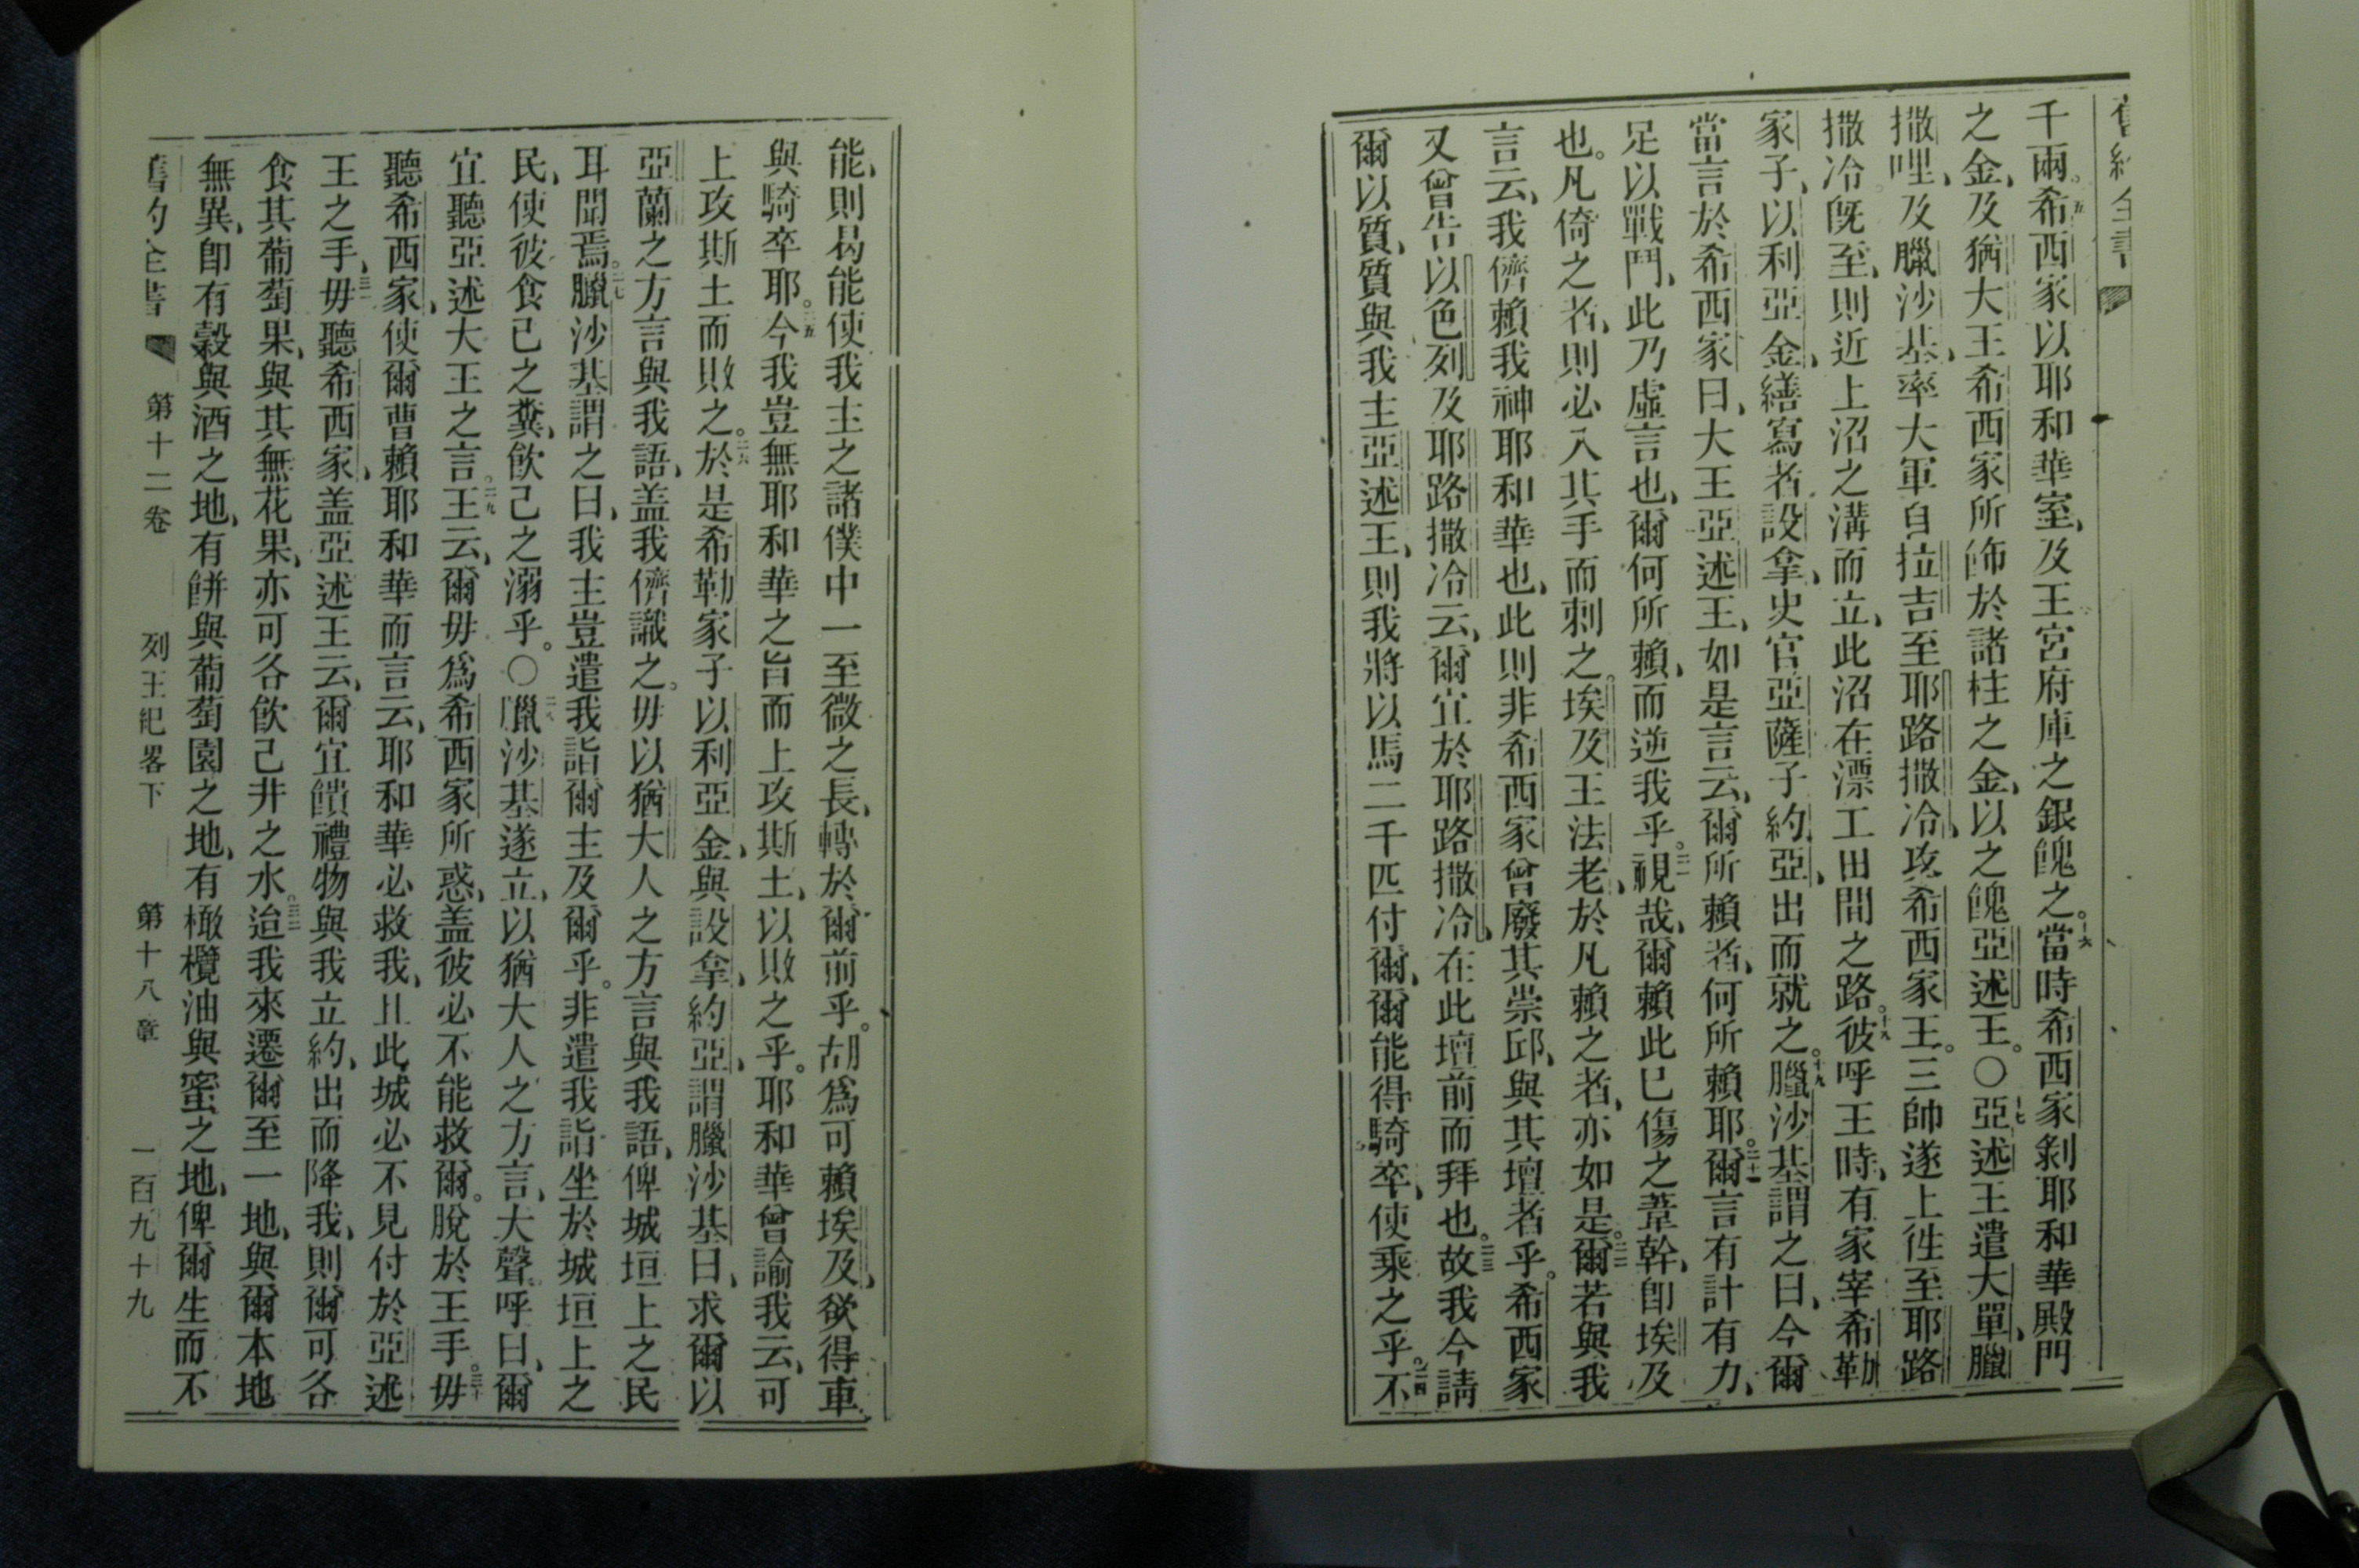 舊約全書
千兩。五希西家以耶和華室、及王宮府庫之銀餽之。十六當時希西家剝耶和華殿門
之金、及猶大王希西家所飾於諸柱之金、以之餽亞述王。〇十七亞述王遣大單、臘
撒哩、及臘沙基、率大軍自拉吉至耶路撒冷、攻希西家王。三帥遂上徃至耶路
撒冷。旣至、則近上沼之溝而立、此沼在漂工田間之路。十八彼呼王時、有家宰希勒
家子、以利亞金、繕寫者設拿、史官亞薩子約亞、出而就之。十九臘沙基謂之曰、今爾
當言於希西家曰、大王亞述王、如是言云、爾所賴者、何所賴耶。二十爾言有計有力、
足以戰鬥、此乃虛言也、爾何所賴、而逆我乎。二一視哉、爾賴此已傷之葦幹、卽埃及
也。凡倚之者、則必入其手而刺之。埃及王法老、於凡賴之者、亦如是。二二爾若與我
言云、我儕賴我神耶和華也、此則非希西家曾廢其崇邱、與其壇者乎。希西家
又曾告以色列及耶路撒冷云、爾宜於耶路撒冷、在此壇前而拜也。二三故我今請
爾以質、質與我主亞述王、則我將以馬二千匹付爾、爾能得騎卒、使乘之乎。二四不
能、則曷能使我主之諸僕中一至微之長、轉於爾前乎。胡爲可賴埃及、欲得車
與騎卒耶。二五今我豈無耶和華之旨而上攻斯土、以敗之乎。耶和華曾諭我云、可
上攻斯土而敗之。二六於是希勒家子以利亞金、與設拿、約亞、謂臘沙基曰、求爾以
亞蘭之方言與我語、盖我儕識之。毋以猶大人之方言與我語、俾城垣上之民
耳聞焉。二七臘沙基謂之曰、我主豈遣我詣爾主及爾乎。非遣我詣坐於城垣上之
民、使彼食己之糞、飮己之溺乎。〇二八臘沙基遂立、以猶大人之方言、大聲呼曰、爾
宜聽亞述大王之言。二九王云、爾毋爲希西家所惑、盖彼必不能救爾。脫於王手。三十毋
聽希西家、使爾曹賴耶和華而言云、耶和華必救我、且此城必不見付於亞述
王之手、三一毋聽希西家、盖亞述王云、爾宜饋禮物與我立約、出而降我、則爾可各
食其葡萄果、與其無花果、亦可各飮己井之水。三二迨我來遷爾至一地、與爾本地
無異、卽有穀與酒之地、有餅與葡萄園之地、有橄欖油與蜜之地、俾爾生而不
舊約全書 第十二卷 列王紀畧下 第十八章 一百九十九